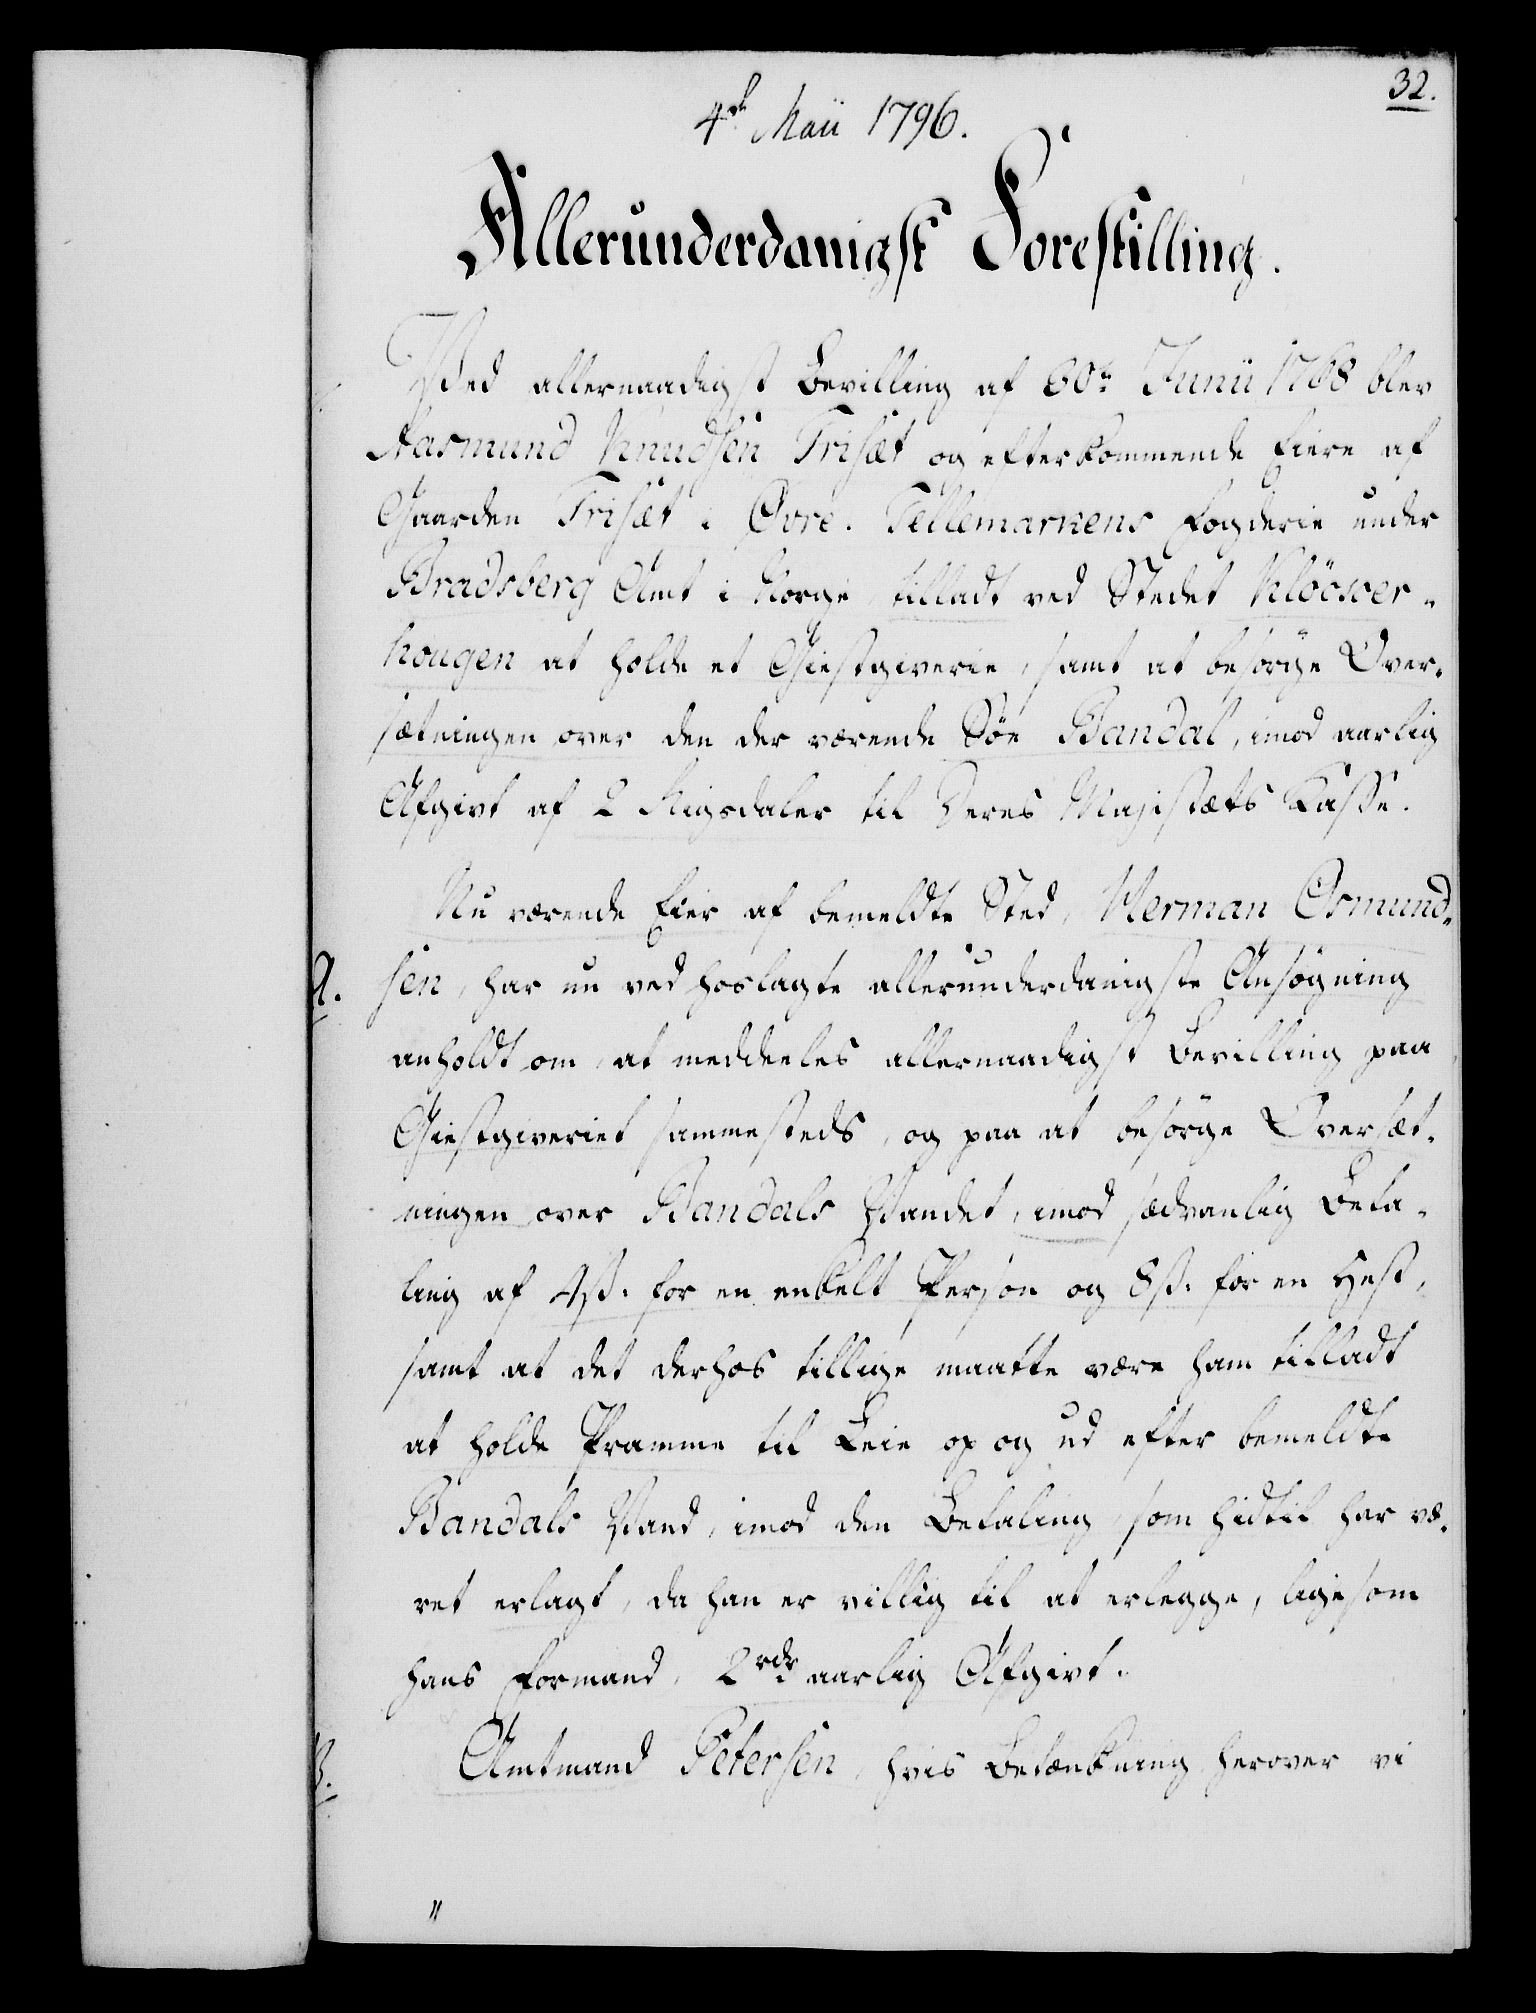 32.
4de Maii 1796.
Allerunderdanigst Forestilling.
Ved allernaadigst Bevilling af 30te Junii 1768 blev
Aasmund Knudsen Trisæt og efterkommende Eiere af
Gaarden Trisæt i Øvre-Tellemarkens Fogderie under
Bradsberg Amt i Norge, tilladt ved Stedet Klöcker-
hougen at holde et Giestgiverie, samt at besörge Over-
sætningen over den der værende Söe Bandal, imod aarlig
Afgivt af 2 Rigsdaler til Deres Majestæts Kasse.
Nu værende Eier af bemeldte Sted, Herman Osmund-
A. sen, har nu ved hoslagte allerunderdanigste Ansögning
anholdt om, at meddeeles allernaadigst Bevilling paa
Giestgiveriet sammesteds, og paa at besörge Oversæt-
ningen over Bandals Vandet, imod sædvanlig Beta-
ling af 4ß. for en enkelt Person og 8ß. for en Hest,
samt at det derhos tillige maatte være ham tilladt
at holde Pramme til Leie op og ud efter bemeldte
Bandals Vand, imod den Betaling, som hidtil har væ-
ret erlagt, da han er villig til at erlegge, ligesom
hans Formand, 2 rdr aarlig Afgivt.
B. Amtmand Petersen, hvis Betænkning herover vi
"